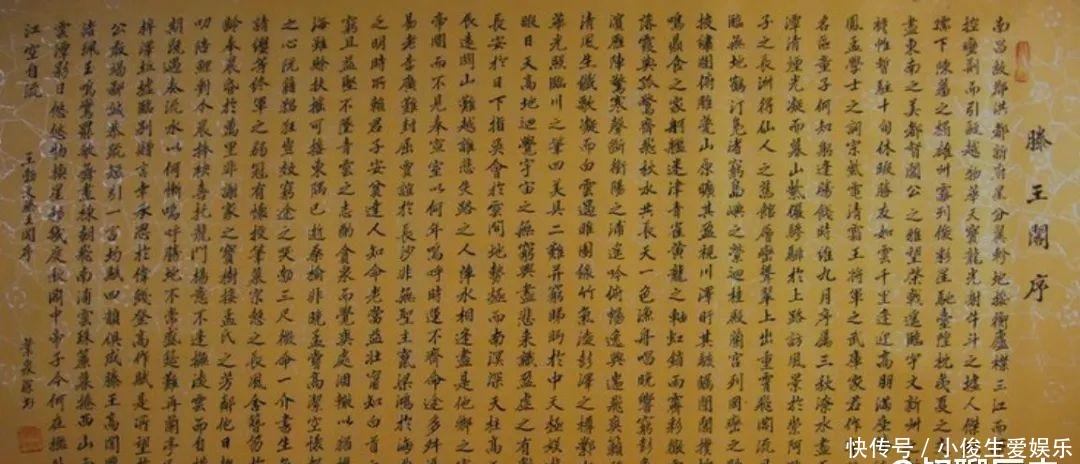 滕王閣序
南昌故郡洪都新府星分翼軫地接衡廬襟三江而
控蠻荊而引甌越物華天寶龍光射牛斗之墟人傑
孺下陳蕃之榻雄州霧列俊彩星馳臺隍枕夷夏之
盡東南之美都督閻公之雅望棨戟遙臨宇文新州
襜帷暫駐十旬休暇勝友如雲千里逢迎高朋滿座
鳳孟學士之詞宗紫電清霜王將軍之武庫家君作
名區童子何知躬逢勝餞時維九月序屬三秋潦水盡
潭清煙光凝而暮山紫儼驂騑於上路訪風景於崇阿
子之長洲得仙人之舊館層巒聳翠上出重霄飛閣流
臨無地鶴汀鳧渚窮島嶼之縈迴桂殿蘭宮列岡巒之
披繡闥俯雕甍山原曠其盈視川澤盱其駭矚閭閻撲
鳴鼎食之家舸艦迷津青雀黃龍之軸虹銷雨霽彩徹
落霞與孤鶩齊飛秋水共長天一色漁舟唱晚響窮彭
濱雁陣驚寒聲斷衡陽之浦遙吟俯暢逸興遄飛爽籟
清風生纖歌凝而白雲遏睢園綠竹氣凌彭澤之樽鄴
華光照臨川之筆四美具二難并窮睇眄於中天
暇日天高地迴覺宇宙之無窮興盡悲來識盈虛之有
長安於日下指吳會於雲間地勢極而南溟深天柱高
辰遠關山難越誰悲失路之人萍水相逢盡是他鄉之
帝閽而不見奉宣室以何年嗚呼時運不齊命途多舛
易老李廣難封屈賈誼於長沙非無聖主竄梁鴻於海
之明時所賴君子安貧達人知命老當益壯寧知白首
窮且益堅不墜青雲之志酌貪泉而覺爽處涸轍以猶
海雖賒扶搖可接東隅已逝桑榆非晚孟嘗高潔空懷
之心阮籍猖狂豈效窮途之哭勃三尺微命一介書生
請纓等終軍之弱冠有懷投筆慕宗愨之長風舍簪笏
齡奉晨昏於萬里非謝家之寶樹接孟氏之芳鄰他日
叨陪鯉對今晨捧袂喜托龍門楊意不逢撫凌雲而自
期既遇奏流水以何慚嗚呼勝地不常盛筵難再蘭亭
梓澤丘墟臨別贈言幸承恩於偉餞登高作賦是所望
公敢竭鄙誠恭疏短引一言均賦四韻俱成滕王高閣
渚珮玉鳴鸞罷歌舞畫棟朝飛南浦雲珠簾暮捲西山
雲潭影日悠悠物換星移幾度秋閣中帝子今何在檻
江空自流
王勃文滕王閣序
快传号／小俊生爱娱乐